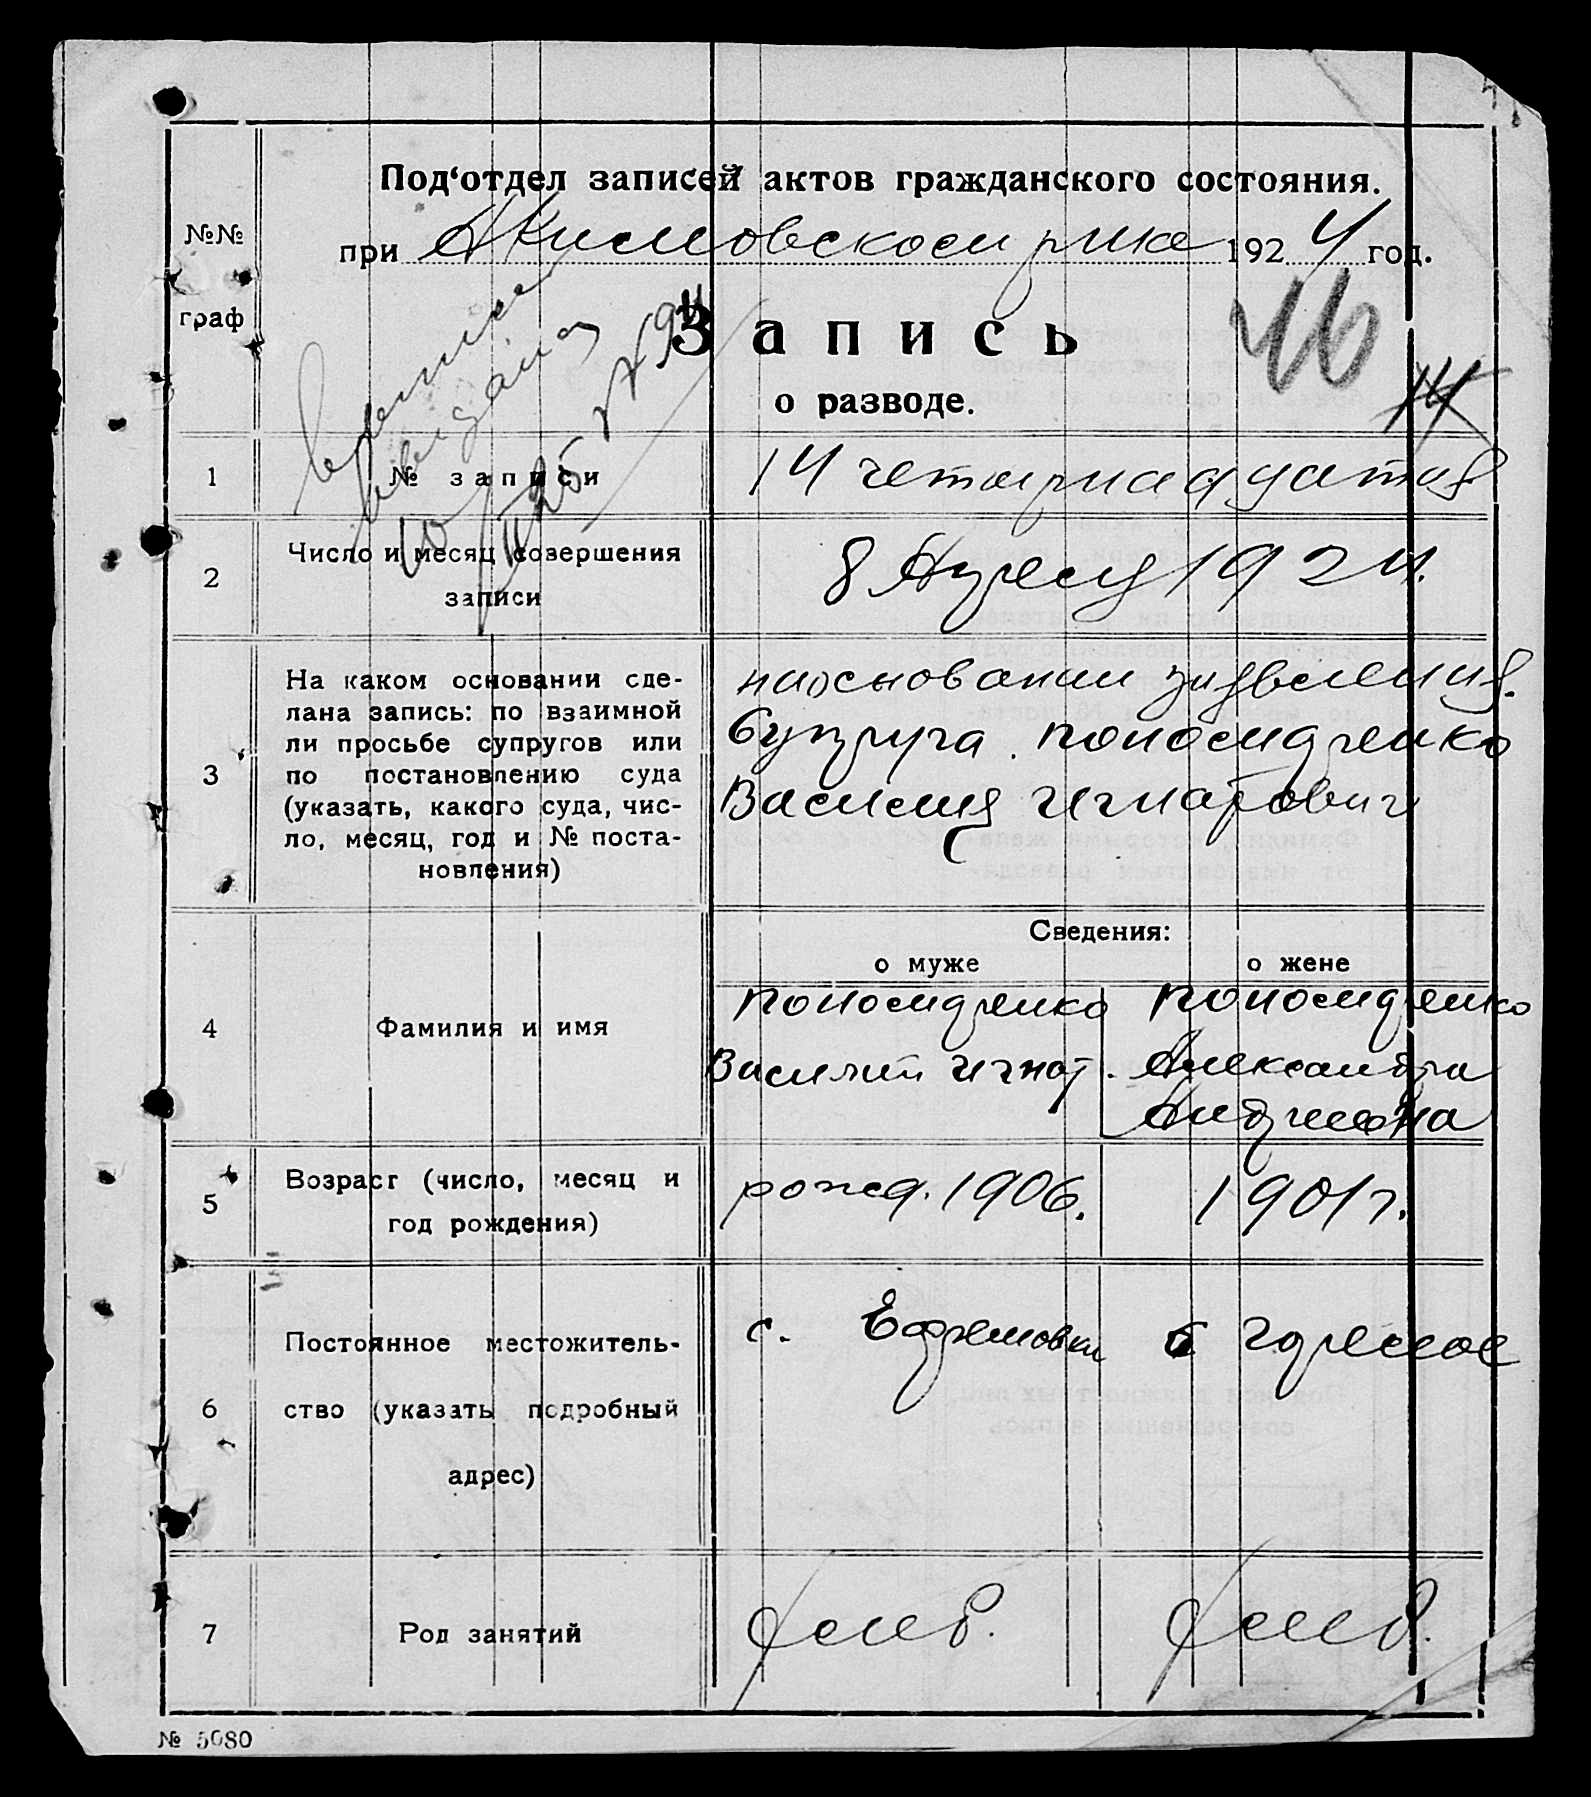 Под'отдел записей актов гражданского состояния.
при Акимовском рике 1924 год.
№№
граф
Запись
о разводе.
46
14
1 № записи 14 четырнадцатая
2 Число и месяц совершения
записи
8 Апреля 1924.
3 На каком основании сде-
лана запись: по взаимной
ли просьбе супругов или
по постановлению суда
(указать, какого суда, чис-
ло, месяц, год и № поста-
новления)
на основании заявления
супруга Поносидченко
Василия Игнатович
Сведения:
о муже о жене
4 Фамилия и имя
Поносидченко
Василий Игнат.
Поносидченко
Александра
Андреевна
5 Возраст (число, месяц и
год рождения)
рожд. 1906. 1901 г.
6 Постоянное местожитель-
ство (указать подробный
адрес)
с. Ефремовки
7 Род занятий
хлеб. хлеб.
№ 5080